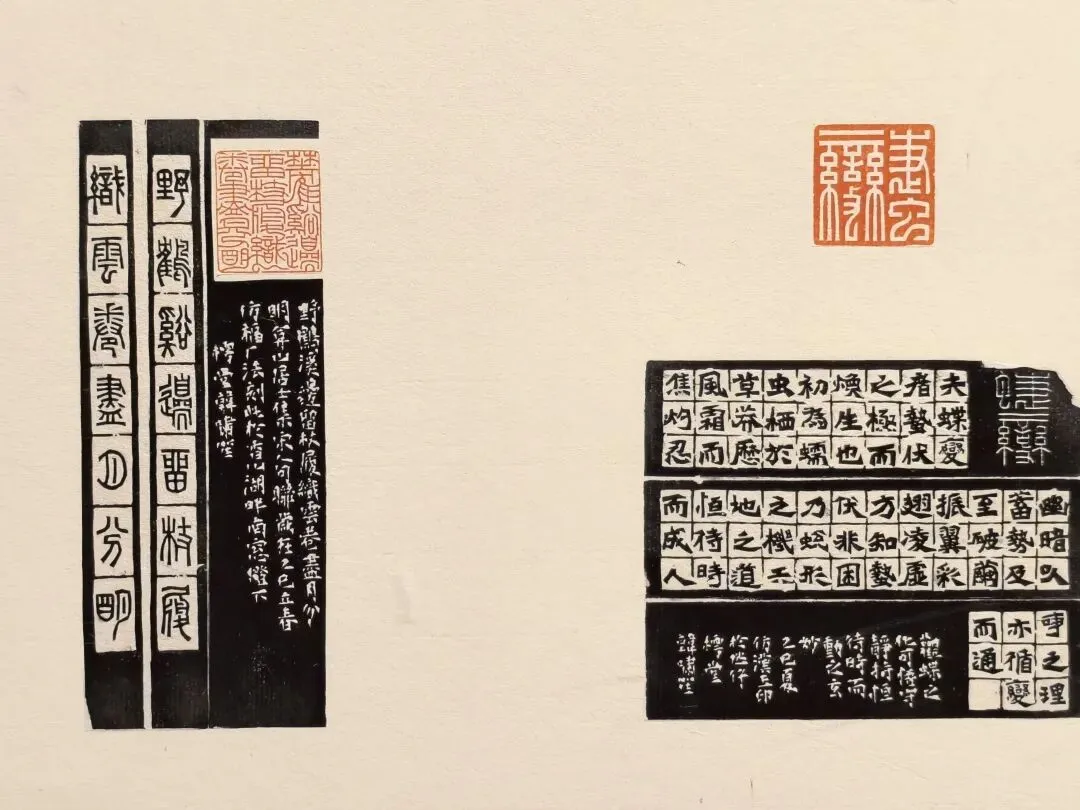 夫蝶變
者蟄伏
之極而
煥生也
初為蠕
虫栖於
草莽歷
風霜而
焦灼忍
幽暗以
蓄勢及
至破繭
振翼彩
翅凌虛
方知蟄
伏非困
乃蛻形
之機天
地之道
恒待時
而成人
事之理
亦循變
而通
觀蝶之
化可悟守
靜持恒
待時而
動之玄
妙
乙巳夏
仿漢玉印
樗堂
韓嘯
野鶴溪邊留杖履織雲卷盡月分
明 山居士集宋人句聯歲在乙巳立春
仿福厂法刻此於 湖畔南窗燈下
樗堂韓嘯
野鶴谿邊留杖履
織雲卷盡月分明